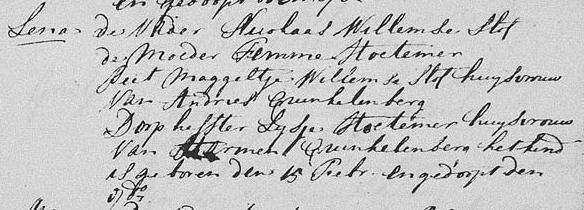 en gedoopt den
Lena de Vader Nicolaas Willemse Slof
de Moeder Femme Stoetemer
Peet Maggeltje Willemse Slof huysvrouw
Van Andries Crunkelenberg
Doop heffter Lysje Stoetemer huysvrouw
Van Harmen Crunkelenberg het kind
is geboren den 15 Febr. en gedoopt den
do